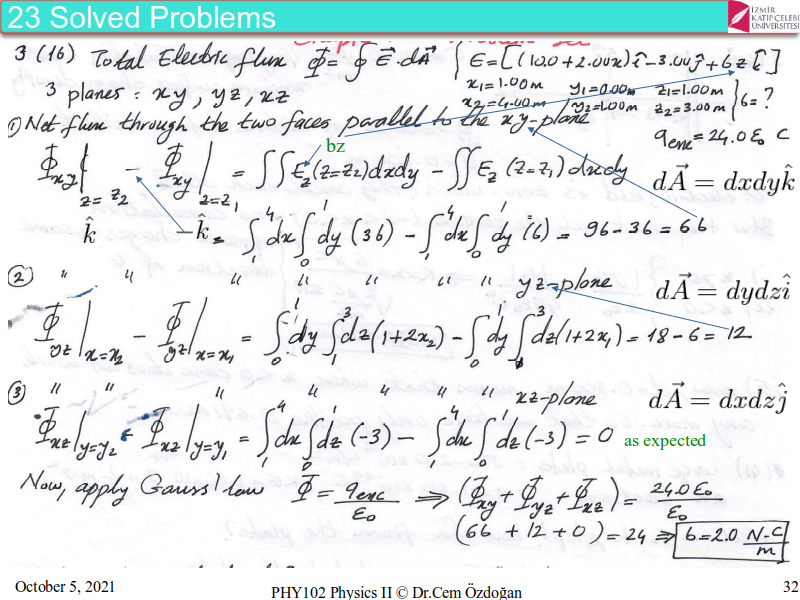 23 Solved Problems
İZMİR
KATİP ÇELEBİ
ÜNİVERSİTESİ
3 (16) Total Electric flux Φ = ∮ E⃗ · dA⃗ { E = [(10.0 + 2.00x) î - 3.00 ĵ + bz k̂ ]
3 planes : xy, yz, xz
x₁ = 1.00 m y₁ = 0.00 m z₁ = 1.00 m
x₂ = 4.00 m y₂ = 1.00 m z₂ = 3.00 m } b = ?
① Net flux through the two faces parallel to the xy-plane
q_enc = 24.0 ε₀ C
bz
Φ_xy|_{z=z₂} - Φ_xy|_{z=z₁} = ∫∫ E_z (z=z₂) dxdy - ∫∫ E_z (z=z₁) dxdy
dA⃗ = dxdyk̂
k̂ -k̂ = ∫₁⁴ dx ∫₀¹ dy (3b) - ∫₁⁴ dx ∫₀¹ dy (b) = 9b - 3b = 6b
② " " " " " " " yz-plane
dA⃗ = dydzî
Φ_yz|_{x=x₂} - Φ_yz|_{x=x₁} = ∫₀¹ dy ∫₁³ dz (1+2x₂) - ∫₀¹ dy ∫₁³ dz (1+2x₁) = 18 - 6 = 12
③ " " " " " " " xz-plane
dA⃗ = dxdzĵ
Φ_xz|_{y=y₂} - Φ_xz|_{y=y₁} = ∫₁⁴ dx ∫₀¹ dz (-3) - ∫₁⁴ dx ∫₀¹ dz (-3) = 0 as expected
Now, apply Gauss' law Φ = q_enc/ε₀ ⇒ (Φ_xy + Φ_yz + Φ_xz) = 24.0 ε₀/ε₀
(6b + 12 + 0) = 24 ⇒ b = 2.0 N-C/m
October 5, 2021
PHY102 Physics II © Dr.Cem Özdoğan
32